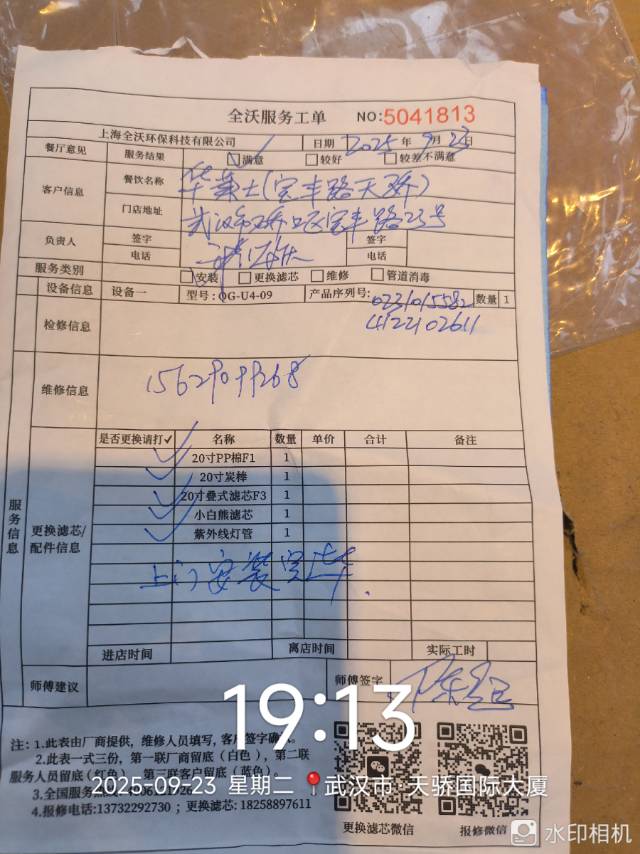 全沃服务工单 NO:5041813
上海全沃环保科技有限公司 日期 2025年9月23日
餐厅意见 服务结果 ☑满意 □较好 □较差不满意
客户信息 餐饮名称 华莱士(宝丰路天骄)
门店地址 武汉市硚口区宝丰路23号
负责人 签字 签字
电话 电话
服务类别 □安装 □更换滤芯 □维修 □管道消毒
设备信息 设备一 型号:QG-U4-09 产品序列号: 0231015582 数量 1
4122102611
检修信息
维修信息 15629099268
服务信息
更换滤芯/配件信息
是否更换请打✓ 名称 数量 单价 合计 备注
✓ 20寸PP棉F1 1
✓ 20寸炭棒 1
✓ 20寸叠式滤芯F3 1
✓ 小白熊滤芯 1
✓ 紫外线灯管 1
上门安装完毕.
进店时间 离店时间 实际工时
师傅建议 师傅签字
19:13
注: 1.此表由厂商提供, 维修人员填写, 客户签字确
2.此表一式三份, 第一联厂商留底 (白色) , 第二联
服务人员留底 (红色) , 第三联客户留底 (蓝色) 。
3.全国服务
2025-09-23 星期二 武汉市 天骄国际大厦
4.报修电话:13732292730 ; 更换滤芯: 18258897611
更换滤芯微信 报修微信
水印相机